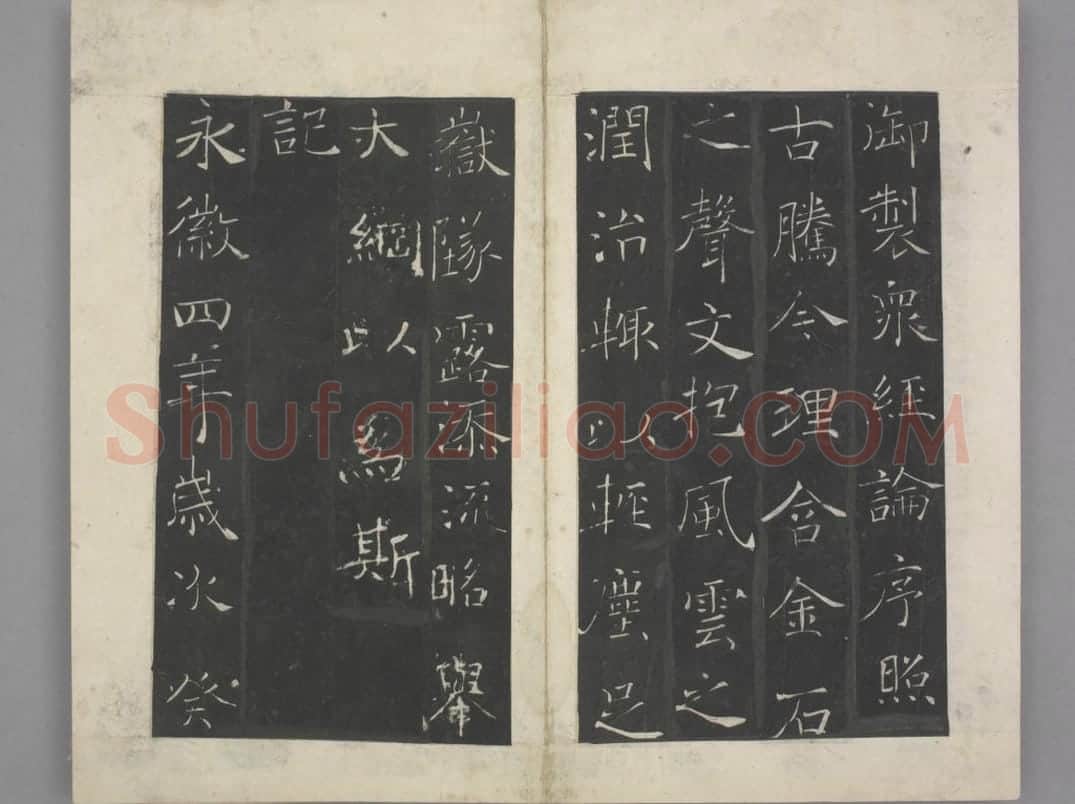 御製衆經論序照
古騰今理含金石
之聲文抱風雲之
潤治輙以輕塵足
嶽墜露添流略舉
大綱以為斯
記
永徽四年歲次癸
Shufaziliao.COM